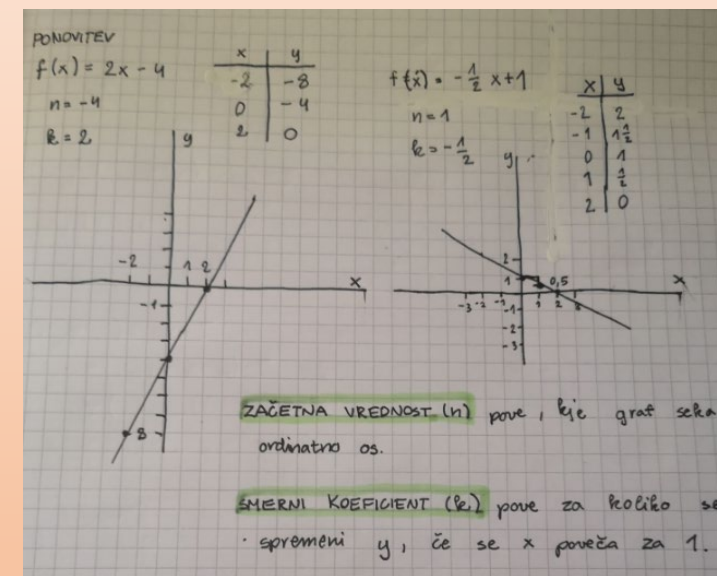 PONOVITEV
f(x) = 2x - 4
n = -4
k = 2
x y
-2 -8
0 -4
2 0
y
-2 1 2 x
-1
-8
f(x) = -1/2 x + 1
n = 1
k = -1/2
x y
-2 2
-1 1 1/2
0 1
1 1/2
2 0
y
2
1 0,5 x
-3 -2 -1 1 2
-1
-2
-3
ZAČETNA VREDNOST (n) pove, kje graf seka
ordinatno os.
SMERNI KOEFICIENT (k) pove za koliko se
spremeni y, če se x poveča za 1.